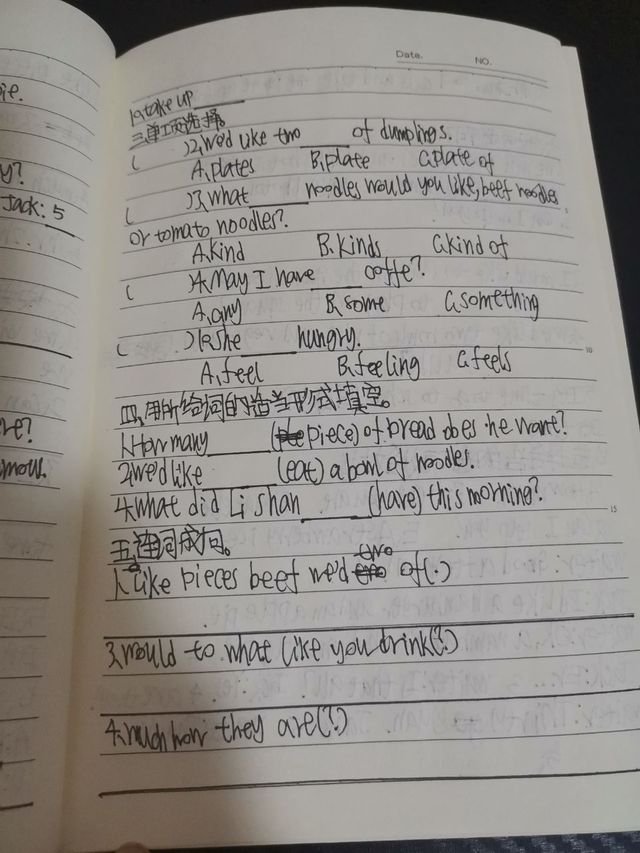 ie.
y?
Jack: 5
re?
mow.
Date. NO.
1.take up ____
三.单项选择。
( )2.we'd like two ____ of dumplings.
A.plates B.plate C.plate of
( )3.what ____ noodles would you like, beef noodles
or tomato noodles?
A.kind B.kinds C.kind of
( )4.May I have ____ coffe?
A.any B.some C.something
( )1.she ____ hungry.
A.feel B.feeling C.feels
四、用所给词的适当形式填空。
1.How many ____ (piece) of bread does he want?
2.we'd like ____ (eat) a bowl of noodles.
4.what did Li shan ____ (have) this morning?
五.连词成句。
1.like pieces beef we'd two of(.)
3.would to what like you drink(?)
4.much how they are(?)
10
15